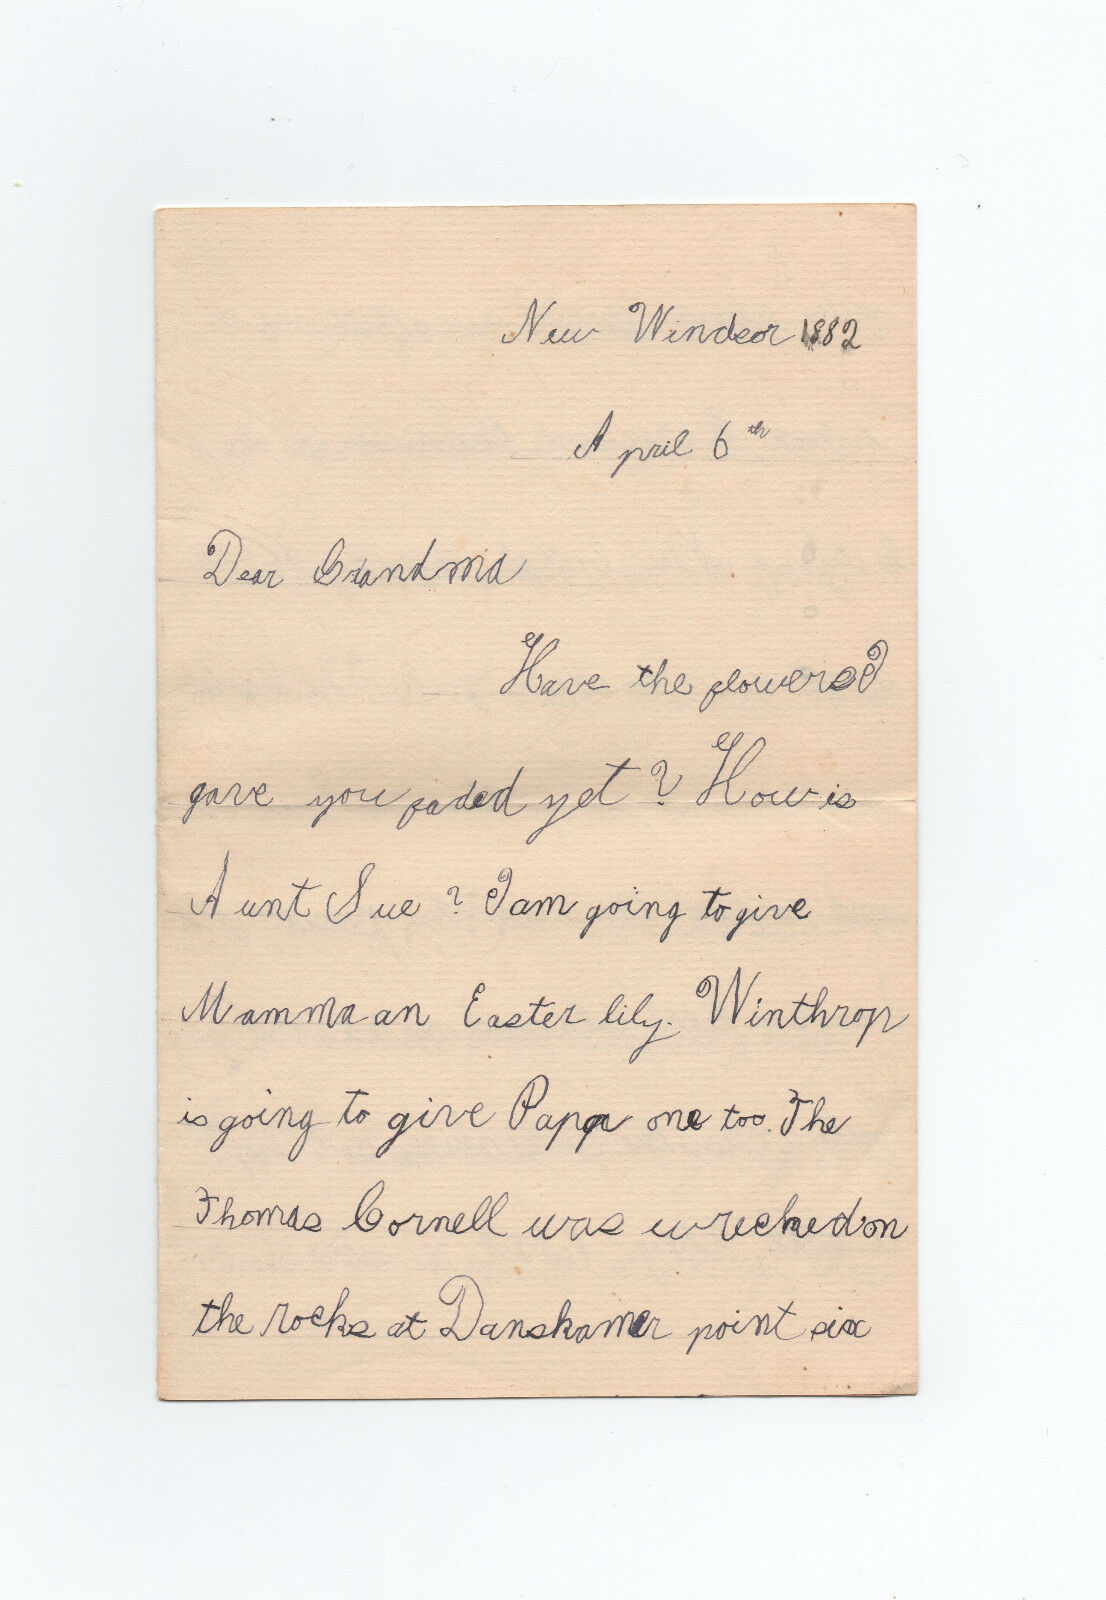 New Windsor 1882
April 6th
Dear Grandma
Have the flowers I
gave you faded yet? How is
Aunt Sue? I am going to give
Mamma an Easter lily. Winthrop
is going to give Papa one too. The
Thomas Cornell was wrecked on
the rocks at Danskamer point six